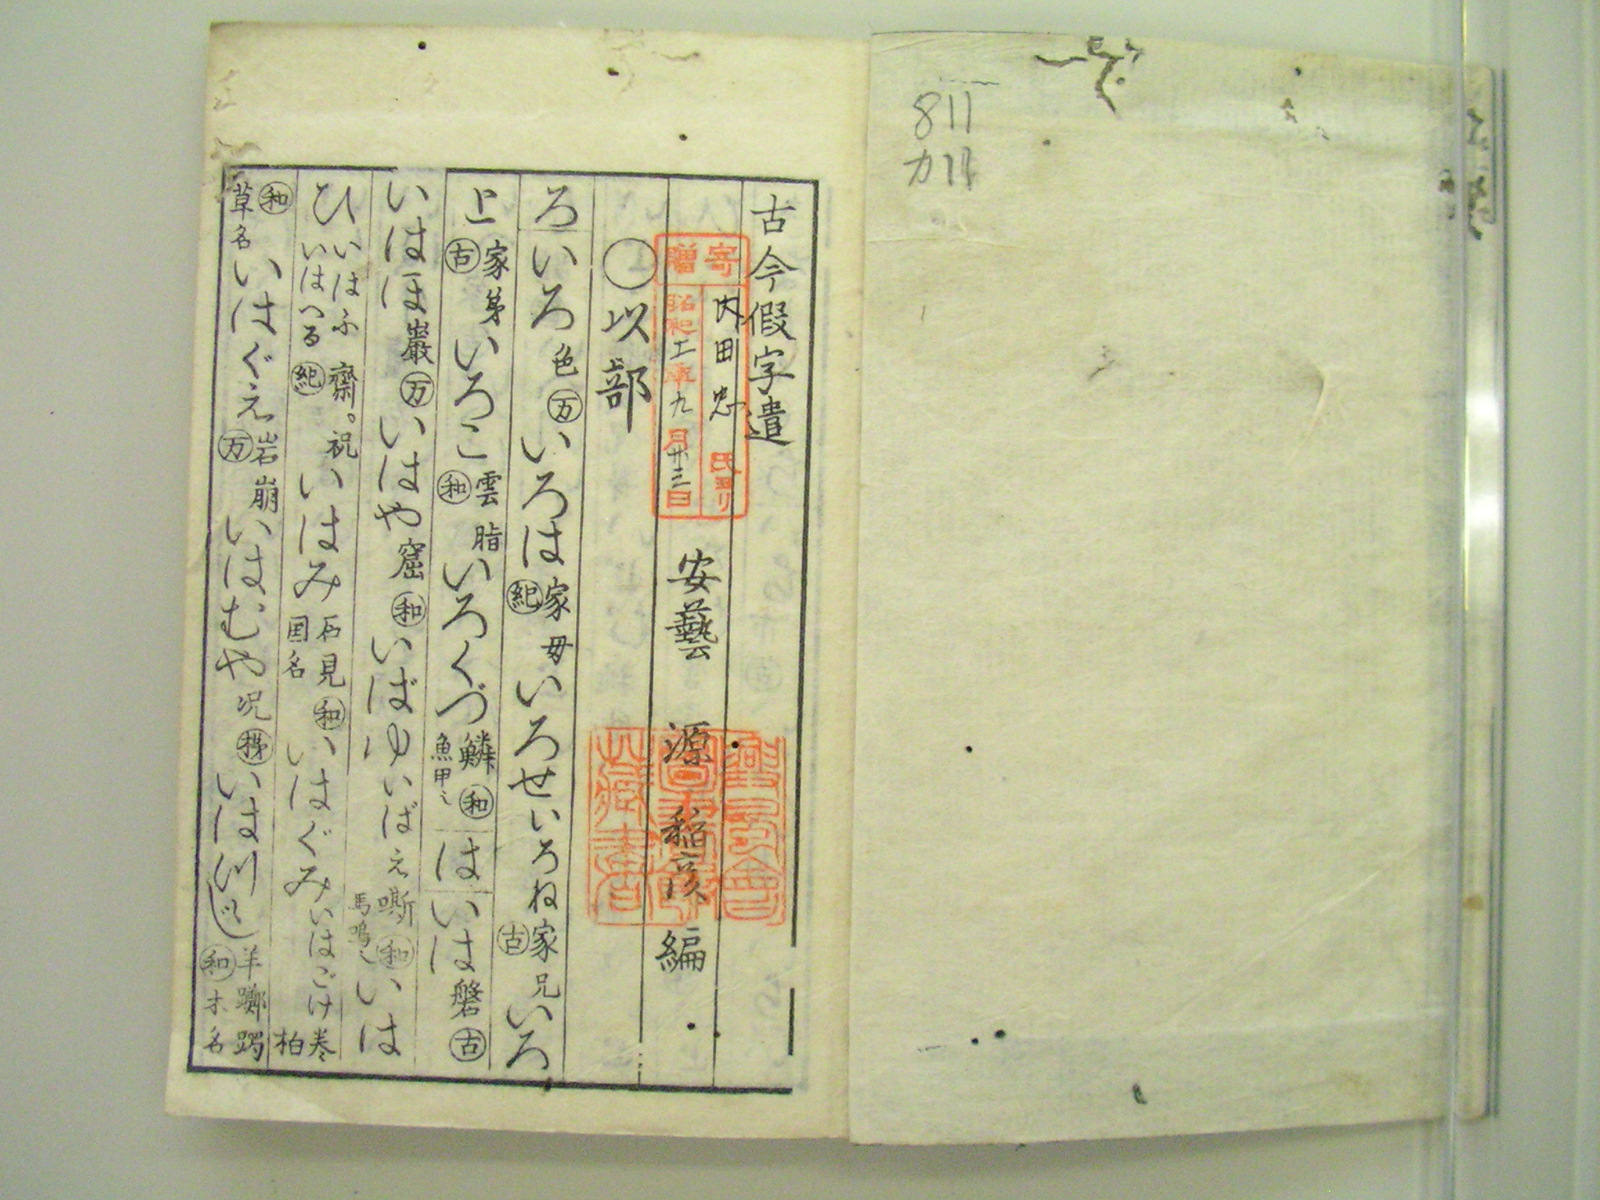 811
カ11
古今假字遣
寄贈
内田忠氏ヨリ
昭和二年九月廿三日
安藝 源稲彦編
〇以部
ろ いろ色万いろは家母紀いろせいろね家兄古いろ
と家弟古いろこ雲脂和いろくづ鱗魚甲也和 は いは磐古
いはほ巌万いはや窟和いばゆいばえ嘶馬鳴也和いは
ひいはふいはへる齋。祝紀いはみ石見国名和いはぐみいはごけ巻柏
和草名いはぐえ岩崩万いはむや况いはつゝじ羊躑躅和木名